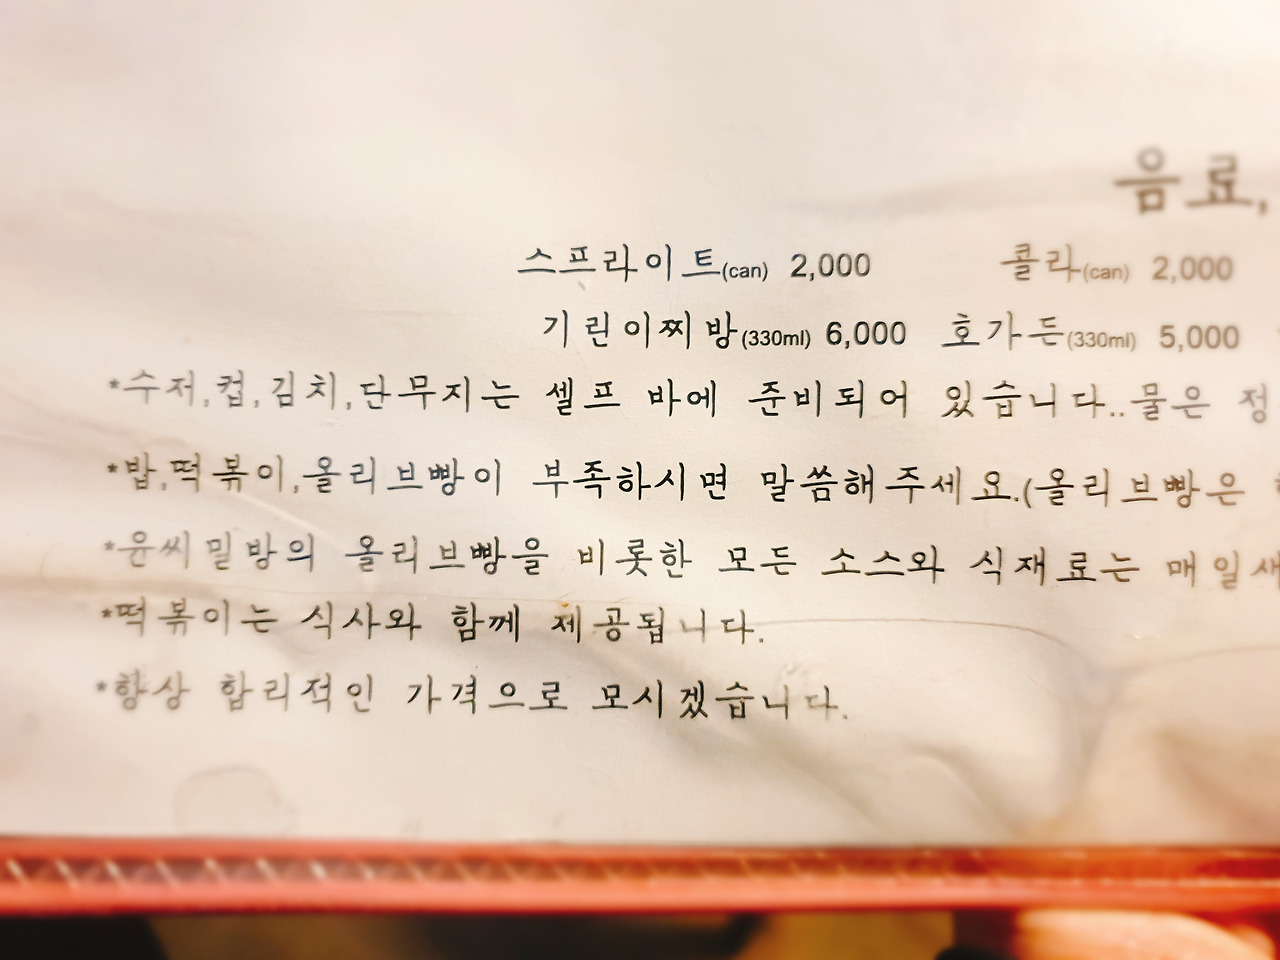 음료,
스프라이트(can) 2,000 콜라(can) 2,000
기린이찌방(330ml) 6,000 호가든(330ml) 5,000
*수저,컵,김치,단무지는 셀프 바에 준비되어 있습니다..물은 정
*밥,떡볶이,올리브빵이 부족하시면 말씀해주세요.(올리브빵은
*윤씨밀방의 올리브빵을 비롯한 모든 소스와 식재료는 매일새
*떡볶이는 식사와 함께 제공됩니다.
*항상 합리적인 가격으로 모시겠습니다.